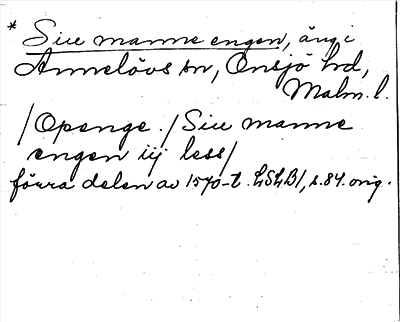 * Siu manne engen, äng i
Annelövs sn, Onsjö hd,
Malm. l.
/Openge./Siu manne
engen iij less/
förra delen av 1570-t. LSLB/, s. 84. orig.